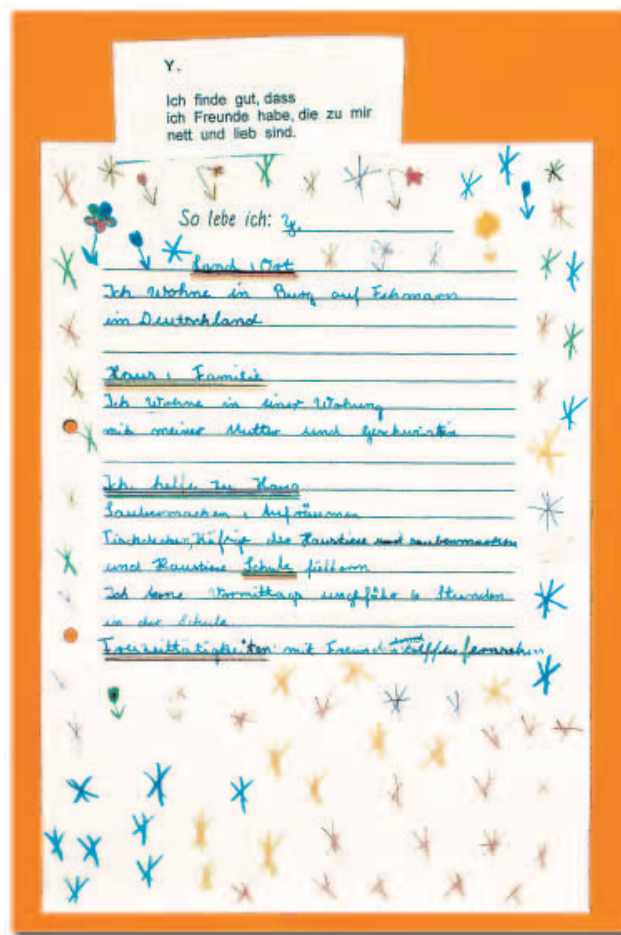 Y.
Ich finde gut, dass
ich Freunde habe, die zu mir
nett und lieb sind.
So lebe ich: Y.
Land, Ort
Ich wohne in Burg auf Fehmarn
in Deutschland
Haus, Familie
Ich Wohne in einer Wohung
mit meiner Mutter und
Ich helfe zu Haus
Saubermachen, Aufräumen
Tischdecken, Käfige der Haustiere und saubermachen
und Haustiere Schule füttern
Ich lerne Vormittags ungefähr 6 Stunden
in der Schule
Freizeittätigkeiten mit Freund fernsehen